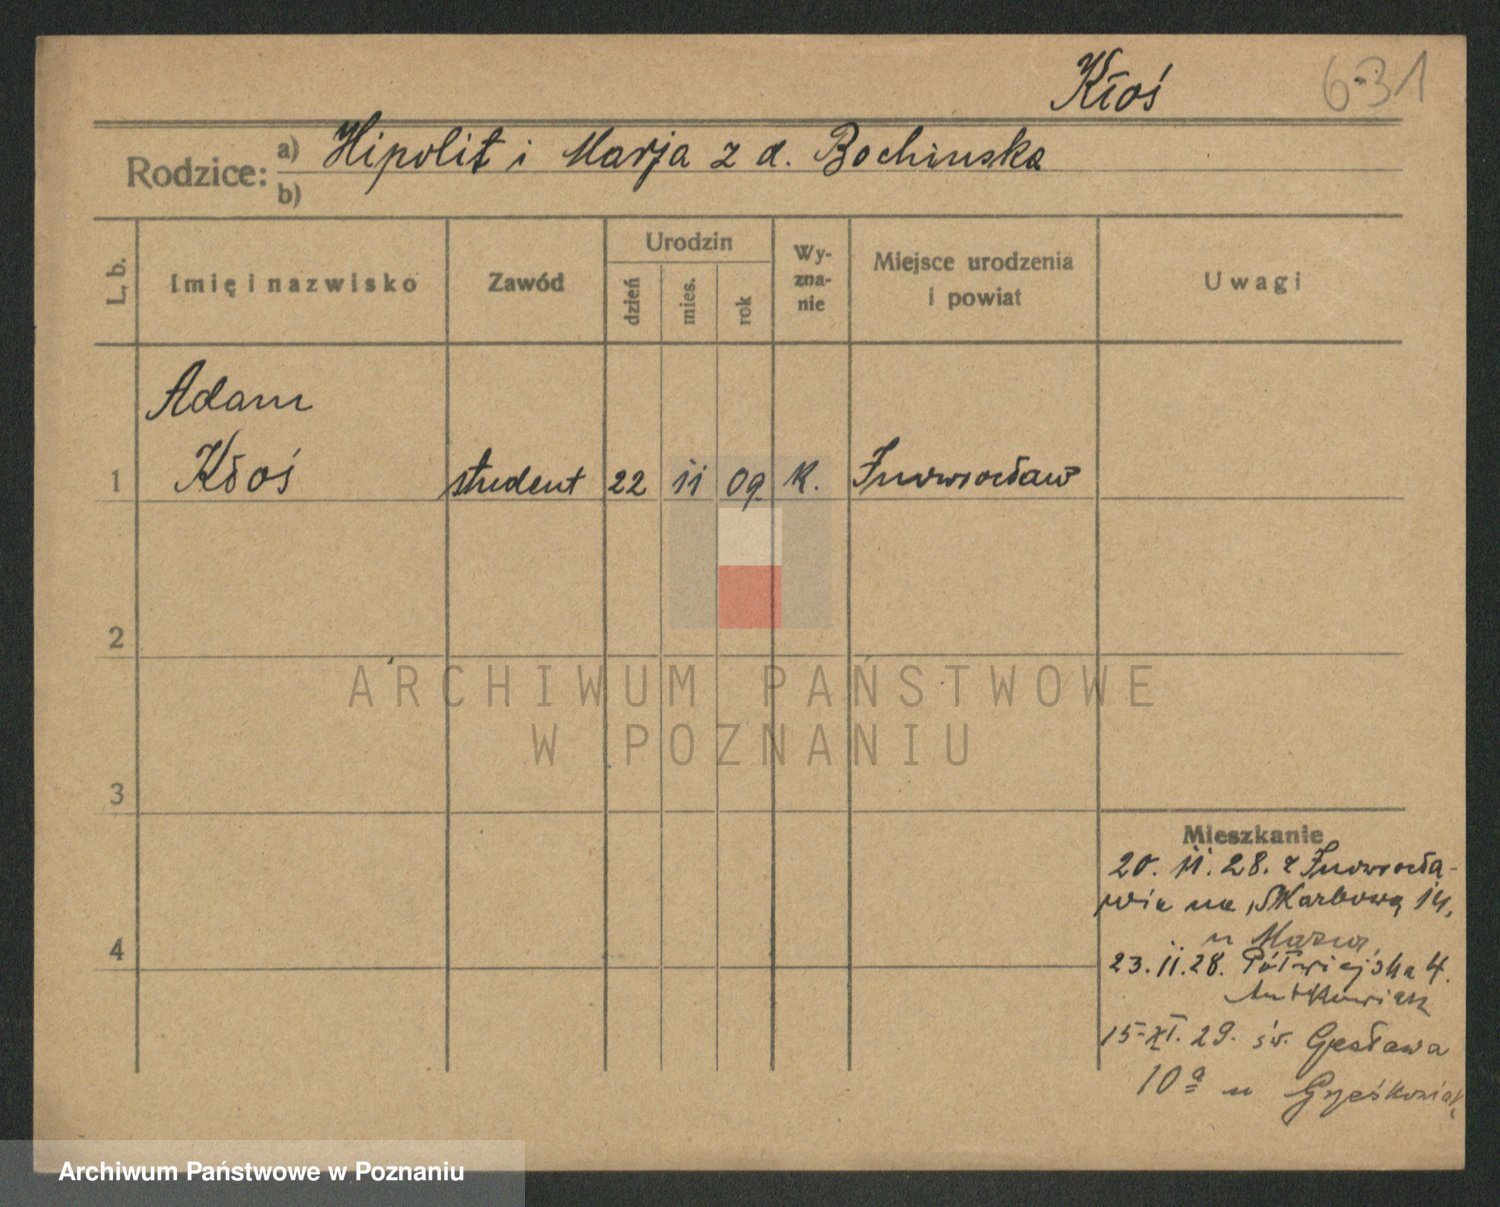 Kłoś
6-31
Rodzice:
a) Hipolit i Marja z d. Bochinska
b)
L. b.
Imię i nazwisko
Zawód
Urodzin
dzień
mies.
rok
Wy-
zna-
nie
Miejsce urodzenia
i powiat
Uwagi
Adam
1 Kłoś student 22 11 09. k. Inowrocław
2
ARCHIWUM PAŃSTWOWE
W POZNANIU
3
Mieszkanie
20. 11. 28. z Inowrocła-
wia na Skarbową 14,
u
4
23. 11. 28. Półwiejska 4.
15-XI. 29. św. Czesława
10a u Grześkowiak
Archiwum Państwowe w Poznaniu